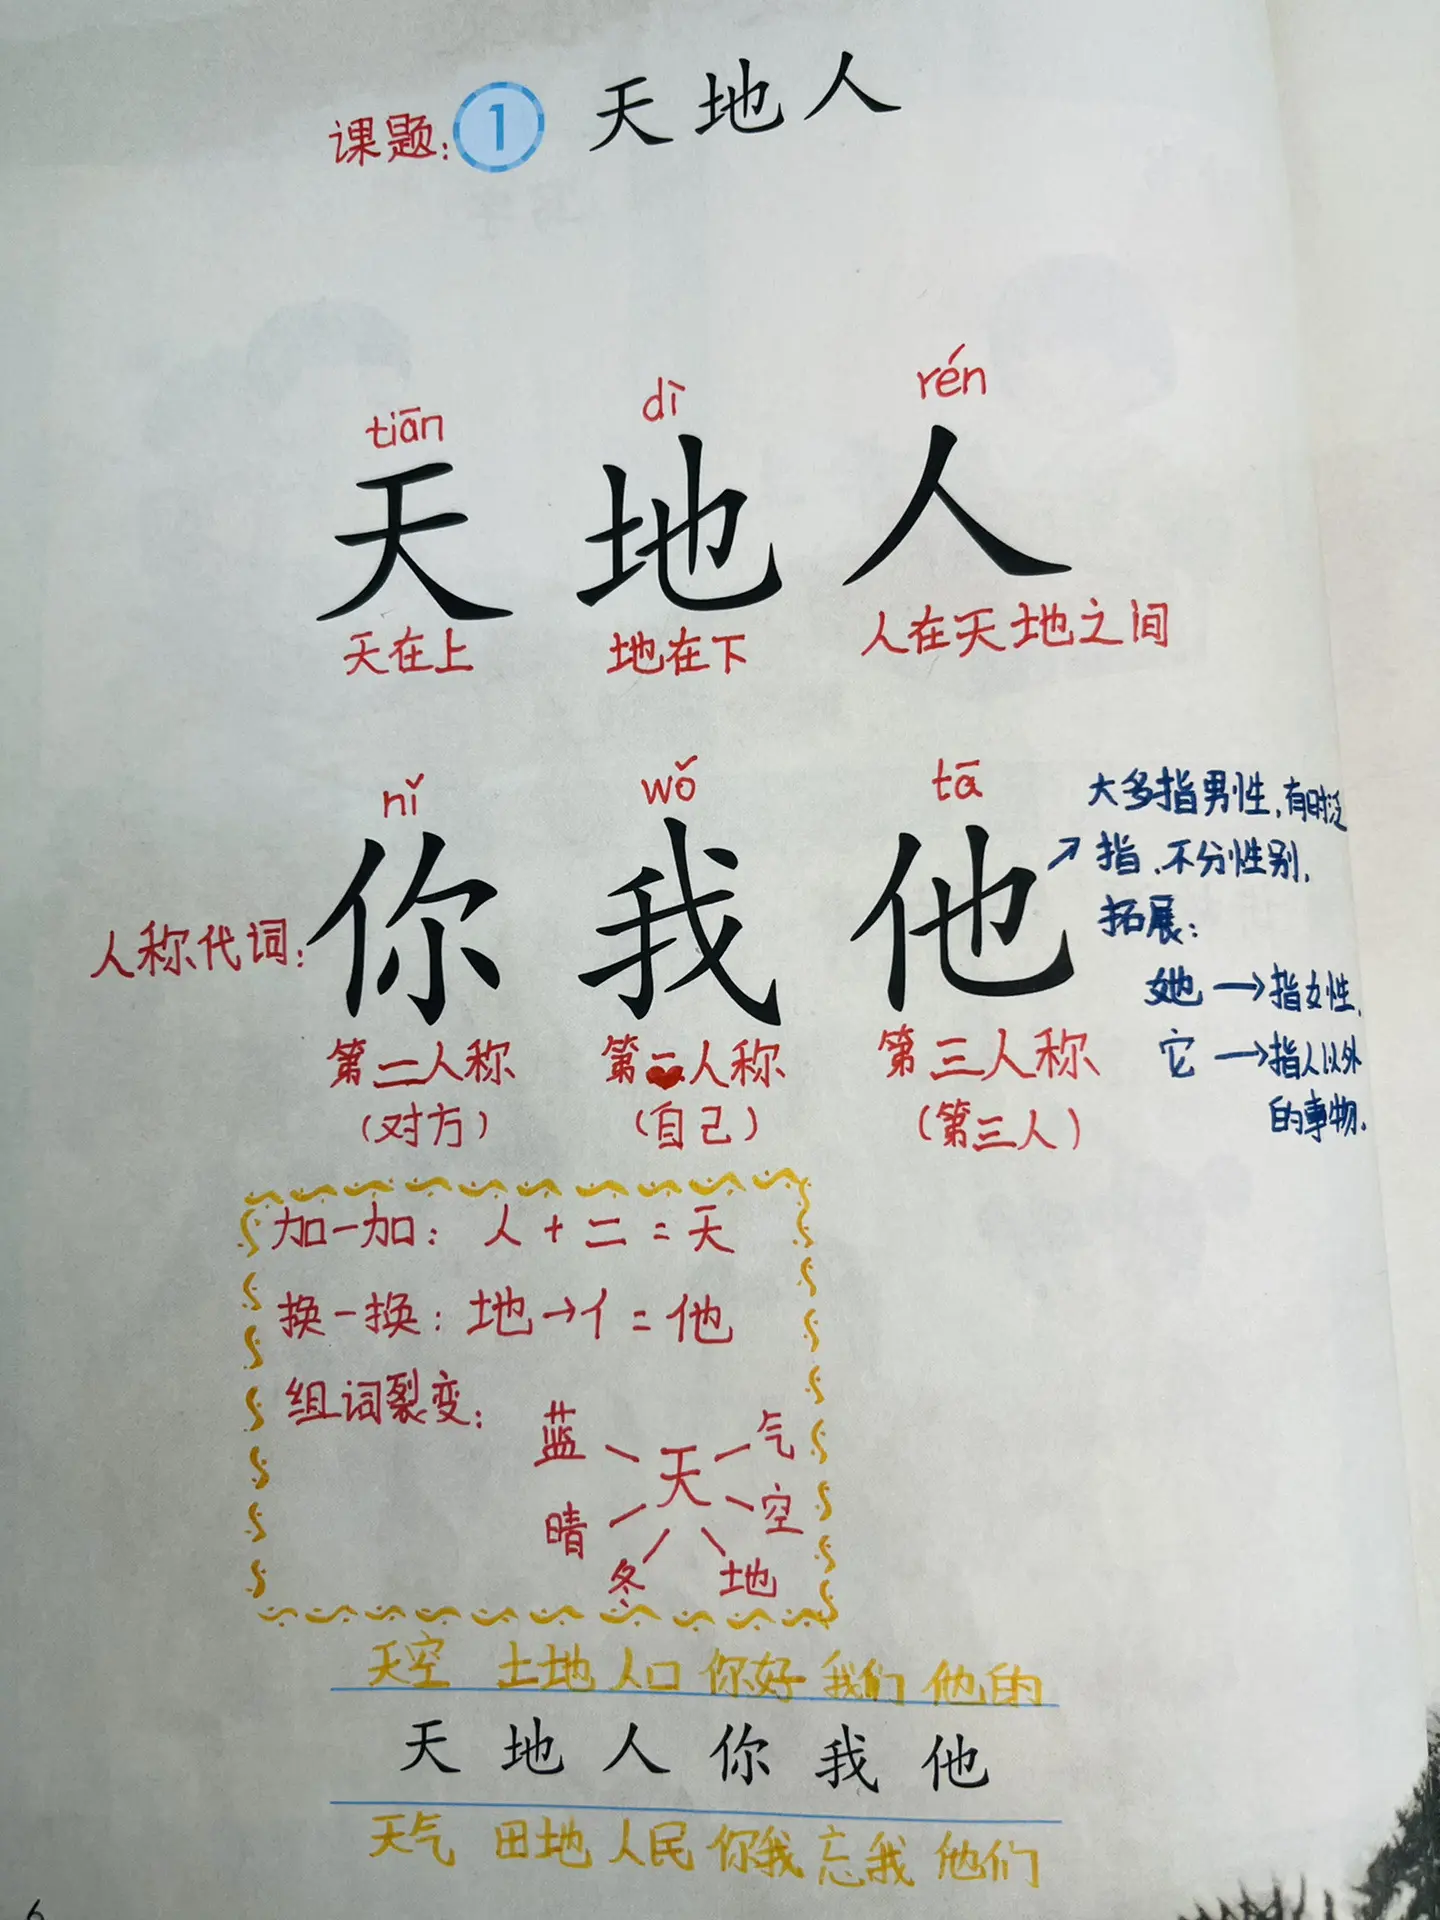 课题: 1 天地人
tiān dì rén
天 地 人
天在上 地在下 人在天地之间
nǐ wǒ tā
人称代词: 你 我 他
大多指男性,有时泛
↗ 指、不分性别.
拓展:
她 → 指女性.
它 → 指人以外
的事物.
第二人称 第一人称 第三人称
(对方) (自己) (第三人)
加一加: 人 + 二 = 天
换一换: 地 → 亻 = 他
组词裂变:
蓝 天 气
晴 空
冬 地
天空 土地 人口 你好 我们 他的
天 地 人 你 我 他
天气 田地 人民 你我 忘我 他们
6